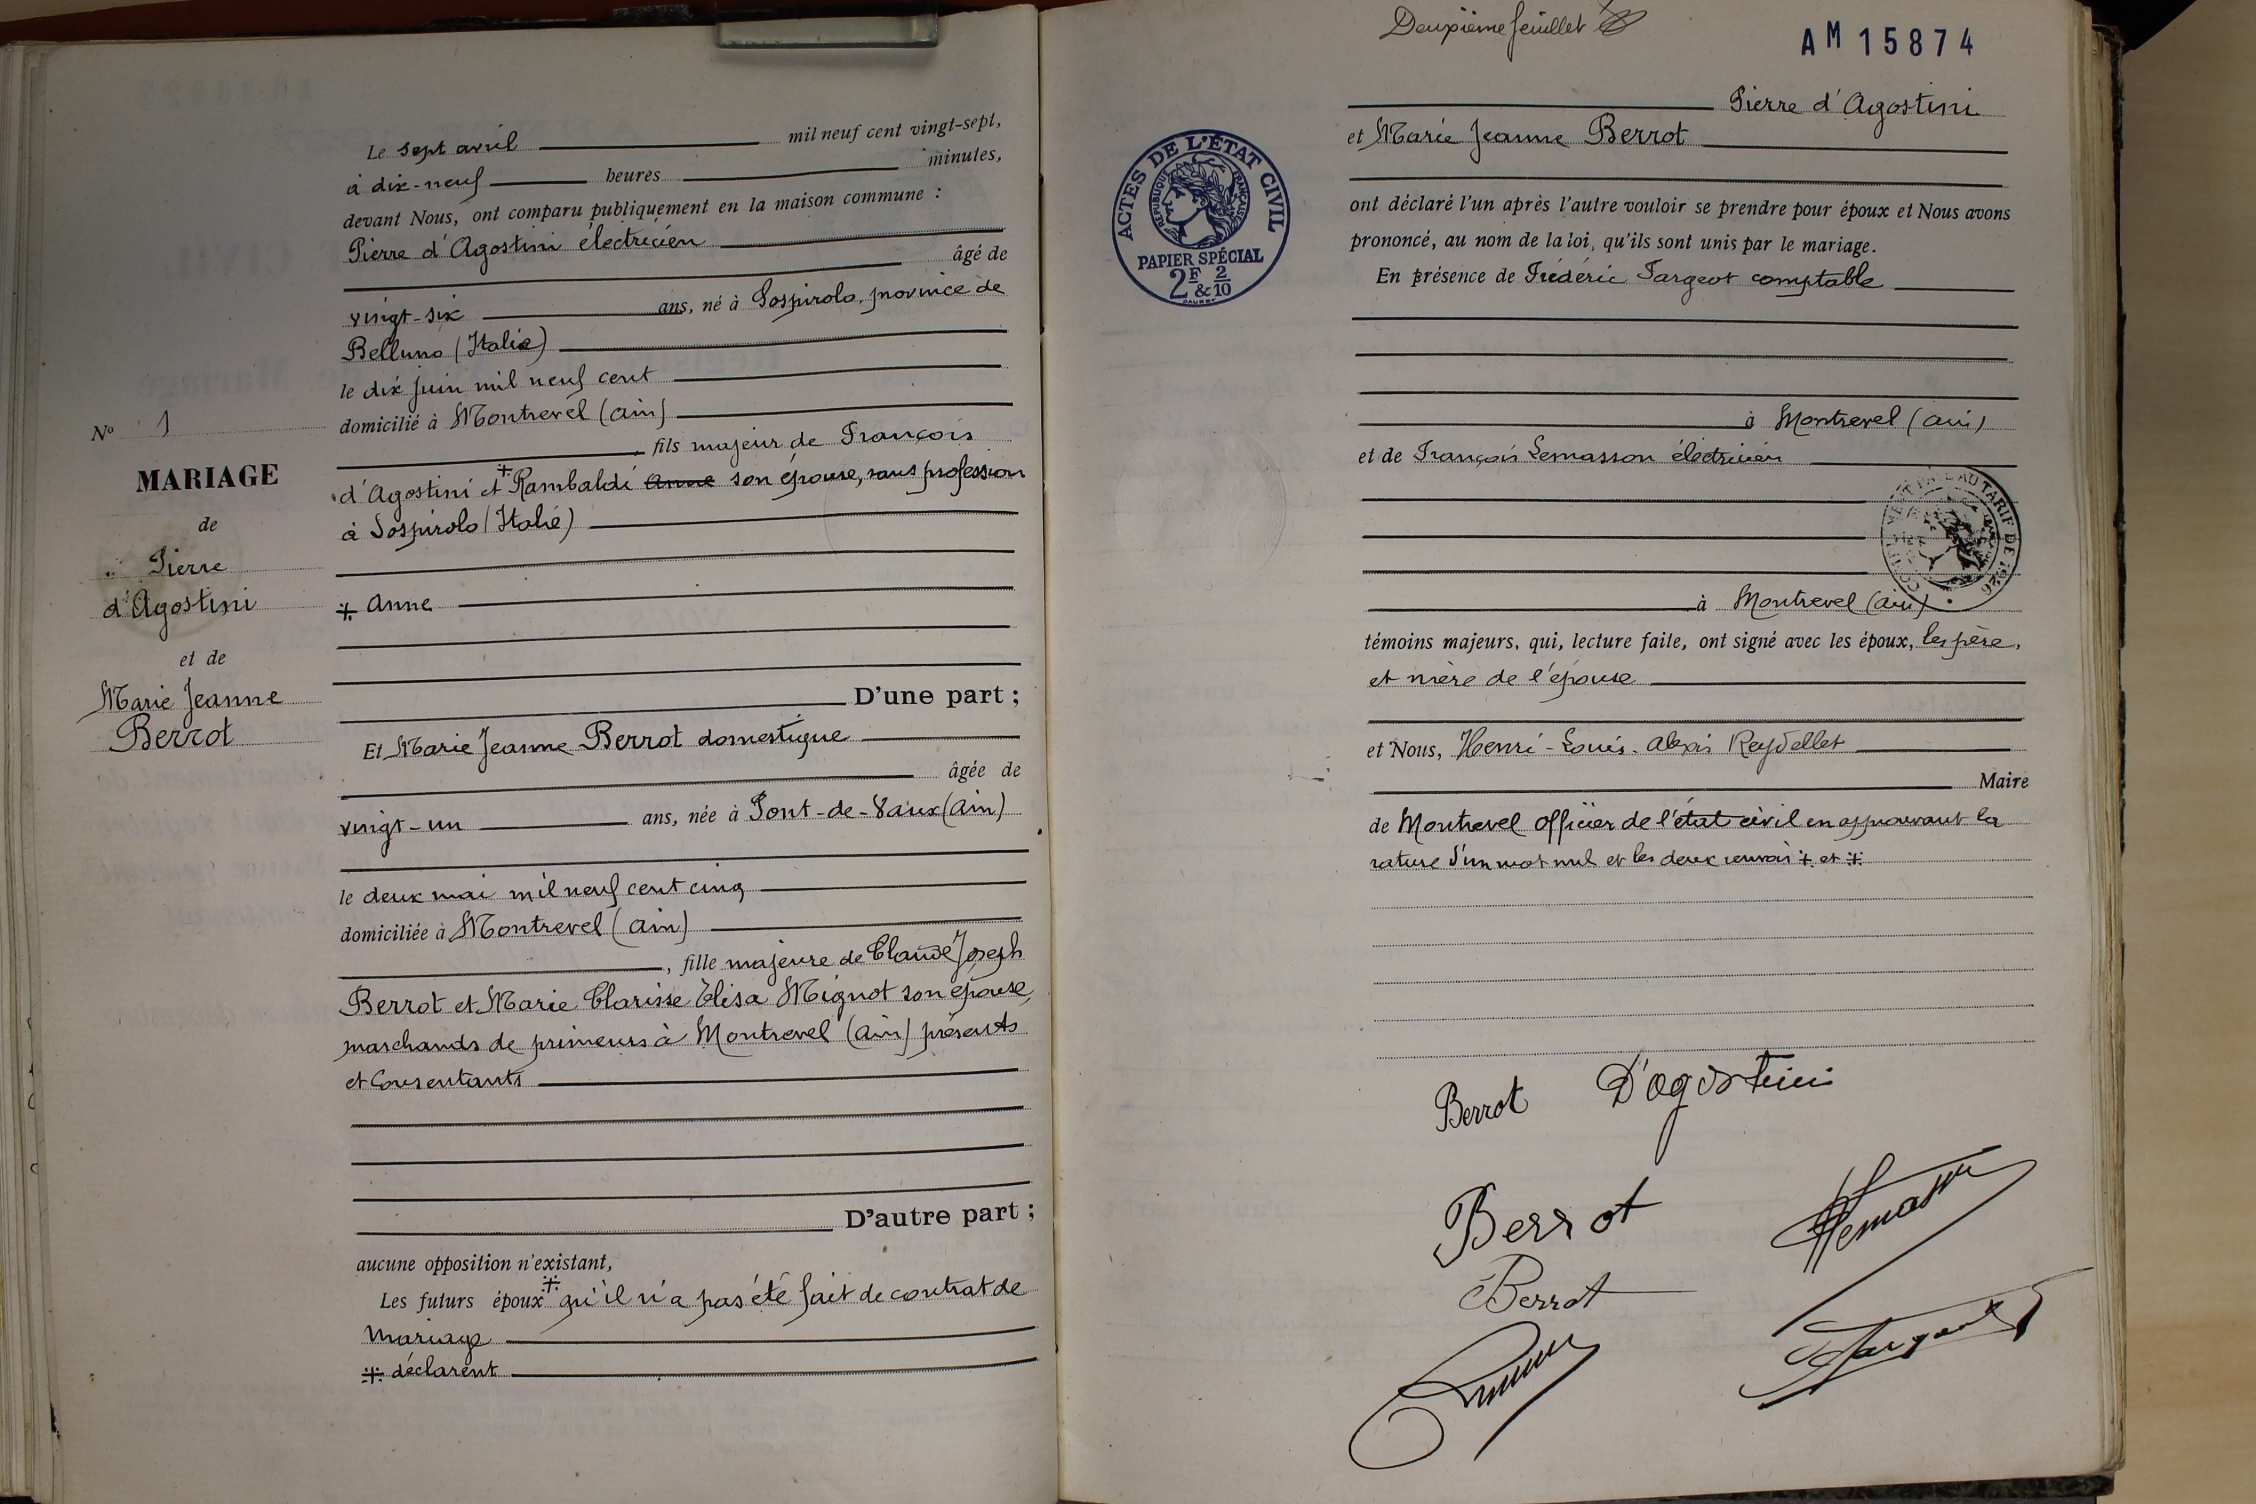 Le sept avril mil neuf cent vingt-sept,
à dix-neuf heures minutes,
devant Nous, ont comparu publiquement en la maison commune :
Pierre d'Agostini électricien
âgé de
vingt-six ans, né à Sospirolo, province de
Belluno (Italie)
le dix juin mil neuf cent
domicilié à Montrevel (ain)
fils majeur de François
d'Agostini et + Rambaldi Anne son épouse, sans profession
à Sospirolo (Italie)
⁜ Anne
D'une part ;
Nº 1
MARIAGE
de
Pierre
d'Agostini
et de
Marie Jeanne
Berrot
Et Marie Jeanne Berrot domestique
âgée de
vingt-un ans, née à Pont-de-Vaux (Ain)
le deux mai mil neuf cent cinq
domiciliée à Montrevel (Ain)
, fille majeure de Claude Joseph
Berrot et Marie Clarisse Elisa Mignot son épouse,
marchands de primeurs à Montrevel (Ain) présents
et consentants
D'autre part ;
aucune opposition n'existant,
Les futurs époux ⁜ qu'il n'a pas été fait de contrat de
mariage
⁜ déclarent
Deuxième feuillet
AM 15874
ACTES DE L'ÉTAT CIVIL
RÉPUBLIQUE FRANÇAISE
PAPIER SPÉCIAL
2F & 2/10
Pierre d'Agostini
et Marie Jeanne Berrot
ont déclaré l'un après l'autre vouloir se prendre pour époux et Nous avons
prononcé, au nom de la loi, qu'ils sont unis par le mariage.
En présence de Frédéric Fargeot comptable
à Montrevel (ain)
et de François Lemasson électricien
TARIF DE 1926
à Montrevel (ain)
témoins majeurs, qui, lecture faite, ont signé avec les époux, les père,
et mère de l'épouse
et Nous, Henri-Louis-Alexis Reydellet
Maire
de Montrevel officier de l'état civil en approuvant la
rature d'un mot nul et les deux renvois ⁜ et ⁜
Berrot D'agostini
Berrot
Lemasson
Berrot
Fargeot